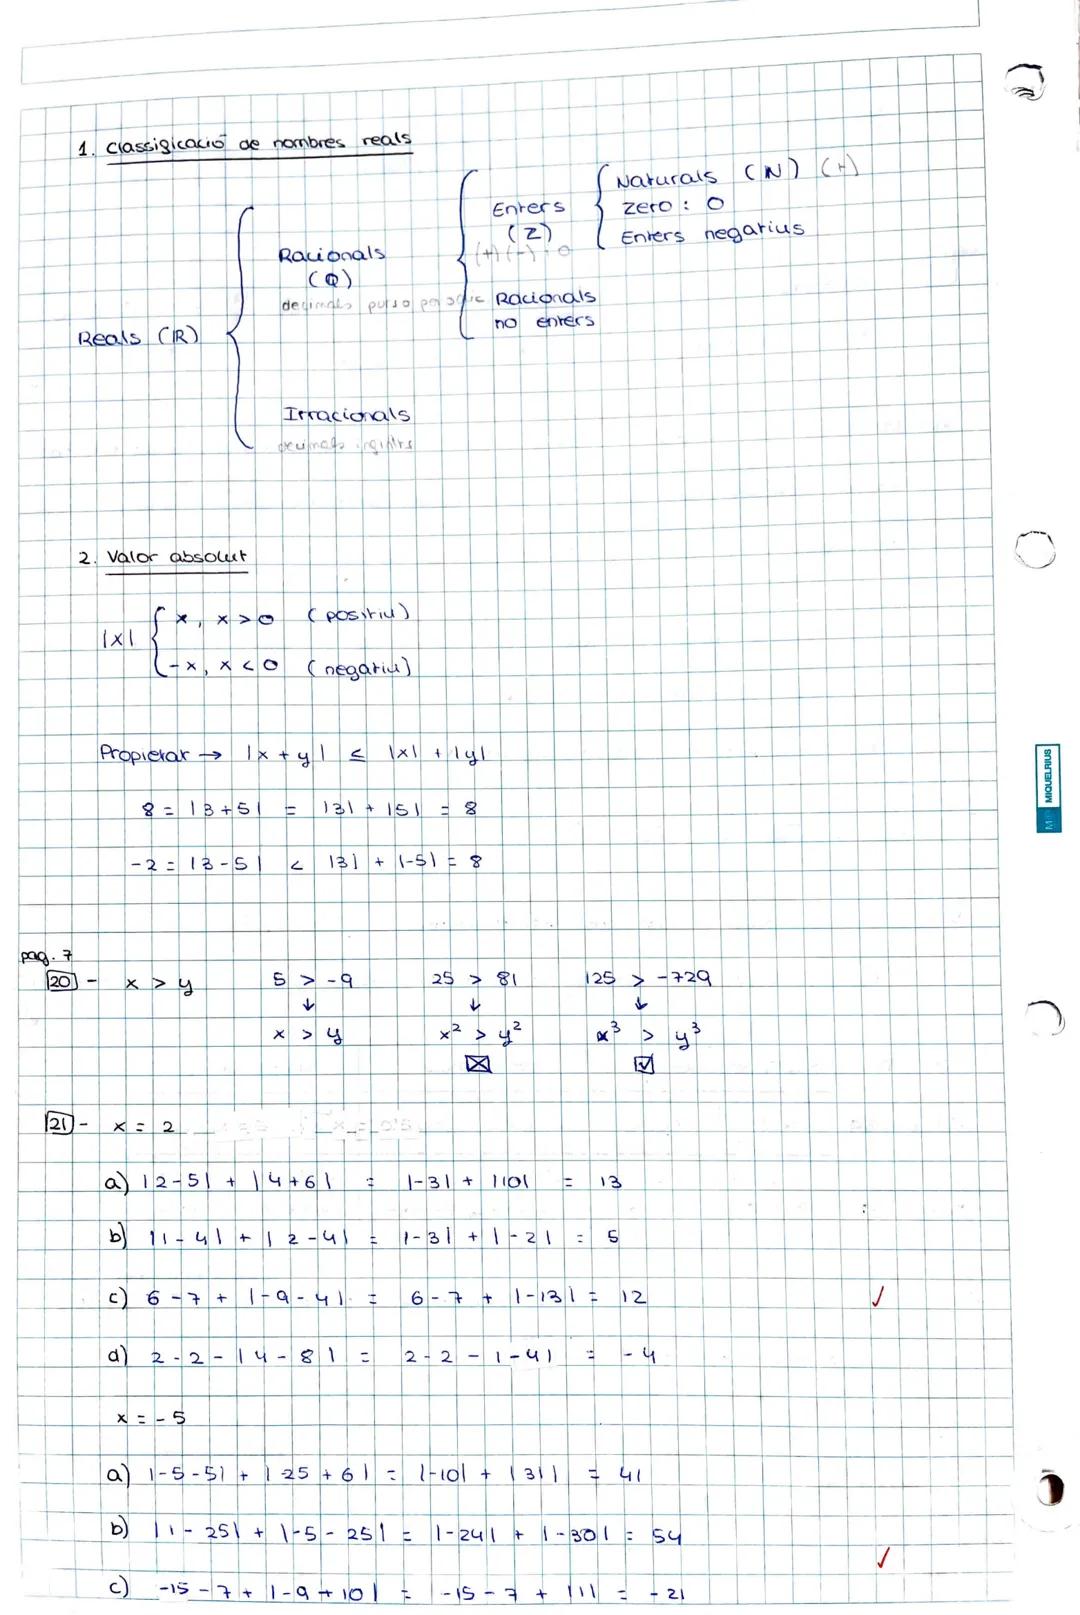 1. Classificació de nombres reals
Naturals (N) (+)
Enters
zero : 0
(Z)
Enters negatius
Racionals
(+) (-) 0
(Q)
decimals
Racionals
no enters
Reals (IR)
Irracionals
decimals
2. Valor absolut
|x|
x, x > 0 (positiu)
-x, x < 0 (negatiu)
Propietat → |x + y| ≤ |x| + |y|
8 = |3+5| = |3| + |5| = 8
-2 = |3-5| < |3| + |-5| = 8
MIQUELRIUS
pag. 7
20 - x > y 5 > -9 25 > 81 125 > -729
↓ ↓ ↓
x > y x² > y² x³ > y³
☒ ☑
21 - x = 2
a) |2-5| + |4+6| = |-3| + |10| = 13
b) |1-4| + |2-4| = |-3| + |-2| = 5
c) 6-7 + |-9-4| = 6-7 + |-13| = 12 ✓
d) 2-2-|4-8| = 2-2-|-4| = -4
x = -5
a) |-5-5| + |25+6| = |-10| + |31| = 41
b) |1-25| + |-5-25| = |-24| + |-30| = 54
✓
c) -15-7+|-9+10| = -15-7+|1| = -21